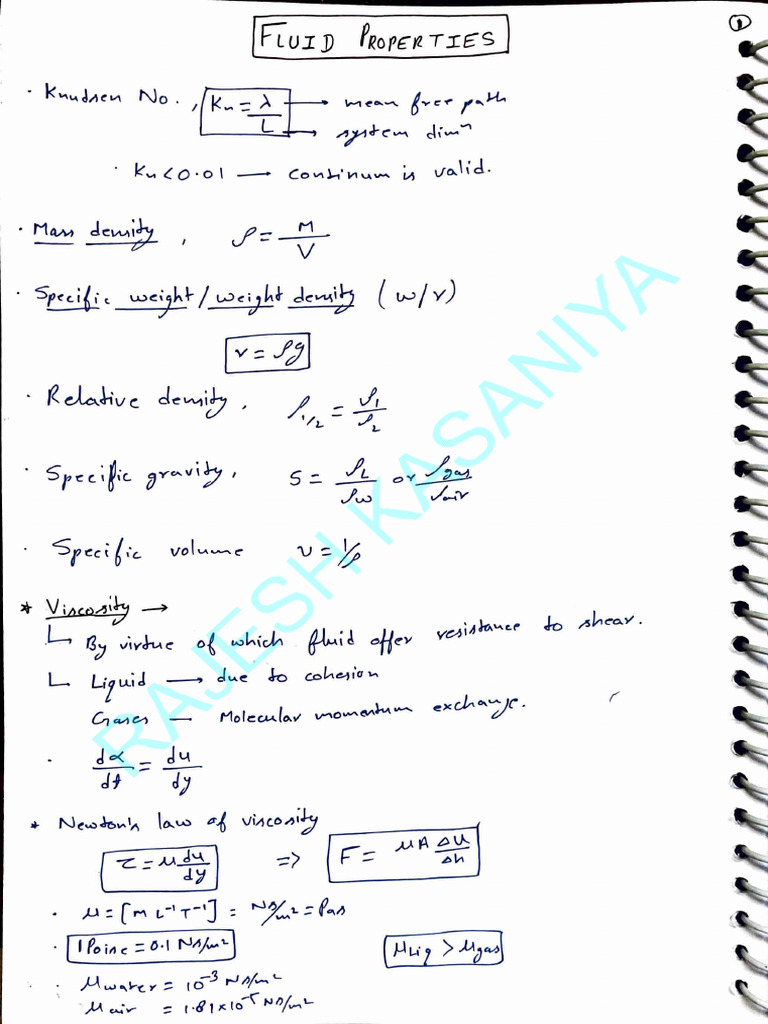 1
FLUID PROPERTIES
· Knudsen No., Kn = λ/L → mean free path
→ system dimⁿ
· Kn<0.01 → continum is valid.
· Mass density, ρ = M/V
· Specific weight / weight density (w/γ)
γ = ρg
· Relative density, ρ₁/₂ = ρ₁/ρ₂
· Specific gravity, S = ρL/ρw or ρgas/ρair
· Specific volume ν = 1/ρ
* Viscosity →
↳ By virtue of which fluid offer resistance to shear.
↳ Liquid → due to cohesion
Gases — Molecular momentum exchange.
· dα/dt = du/dy
* Newton's law of viscosity
τ = μ du/dy => F = μA ΔU/Δh
· μ = [M L⁻¹ T⁻¹] = Ns/m² = Pas
· 1 Poise = 0.1 Ns/m² μLiq > μgas
· μwater = 10⁻³ Ns/m²
μair = 1.81×10⁻⁵ Ns/m²
RAJESH KASANIYA